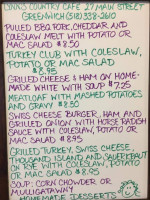 LYNN'S COUNTRY CAFE 27 MAIN STREET
GREENWICH (518)338-2610
PULLED BBQ PORK, CHEDDAR, AND
COLESLAW MELT WITH POTATO OR
MAC SALAD $8.50
TURKEY CLUB WITH COLESLAW,
POTATO OR MAC SALAD
$8.95
GRILLED CHEESE & HAM ON HOME-
MADE WHITE WITH SOUP $7.25
MEATLOAF WITH MASHED POTATOES
AND GRAVY $8.50
SWISS CHEESE BURGER, HAM AND
GRILLED ONION WITH HORSE RADISH
SAUCE WITH COLESLAW, POTATO OR
MAC SALAD $8.95
GRILLED TURKEY, SWISS CHEESE,
THOUSAND ISLAND AND SAUERKRAUT
ON RYE WITH COLESLAW, POTATO
OR MAC SALAD $8.95
SOUP: CORN CHOWDER OR
MULLIGATAWNY
HOMEMADE DESSERTS